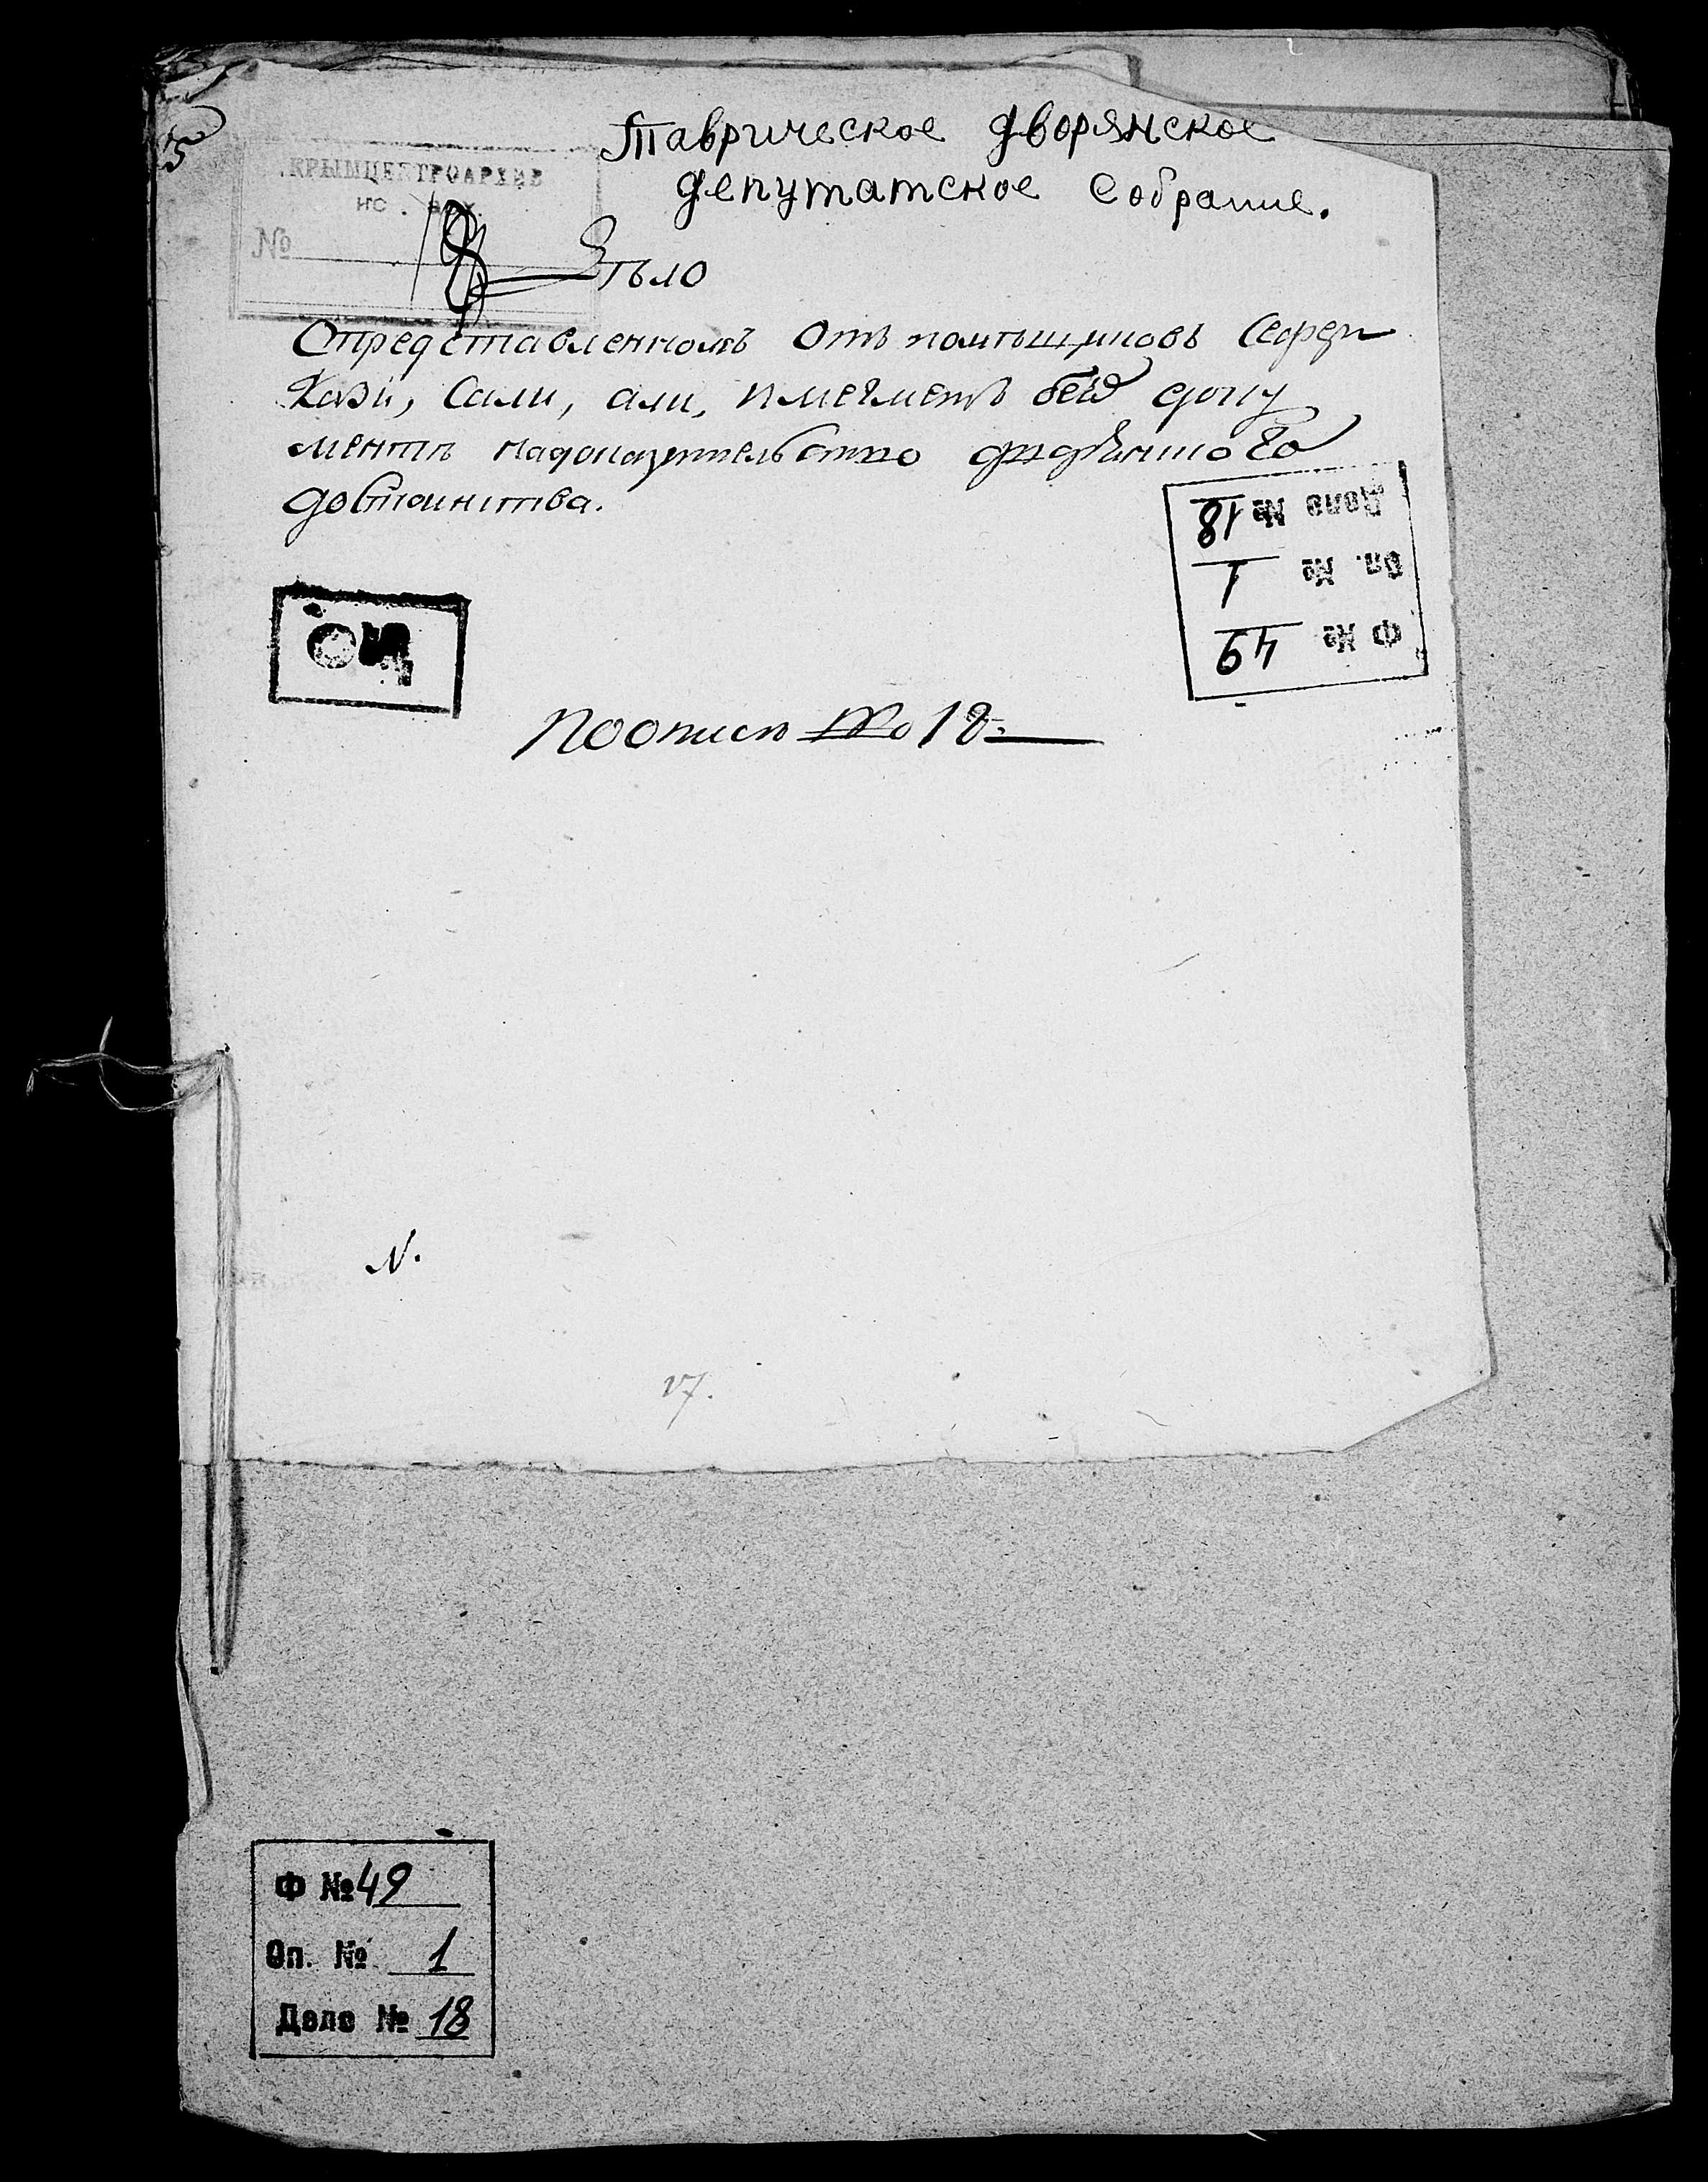 Таврическое дворянское
депутатское Собрание.
КРЫМЦЕНТРОАРХИВ
№
18 Дѣло
О представленномъ отъ помѣщиковъ Сефер
Кази, Сали, али, Имегметъ бей доку
ментъ надоказательство
достоинства.
Дело № 18
Оп. № 1
Ф № 49
Поописи № 18.
N.
Ф № 49
Оп. № 1
Дело № 18